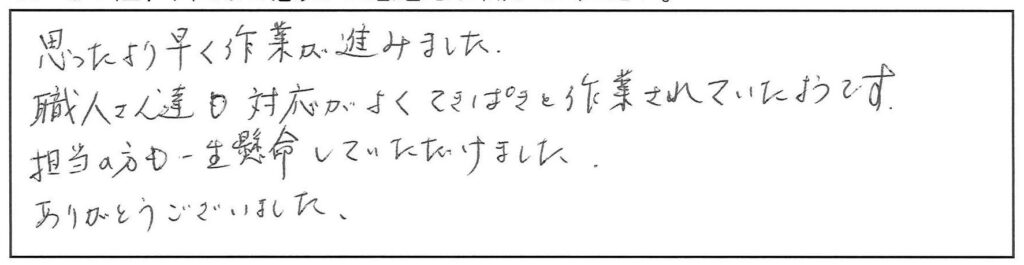 思ったより早く作業が進みました.
職人さん達も対応がよくてきぱきと作業されていたようです.
担当の方も一生懸命していただけました.
ありがとうございました、